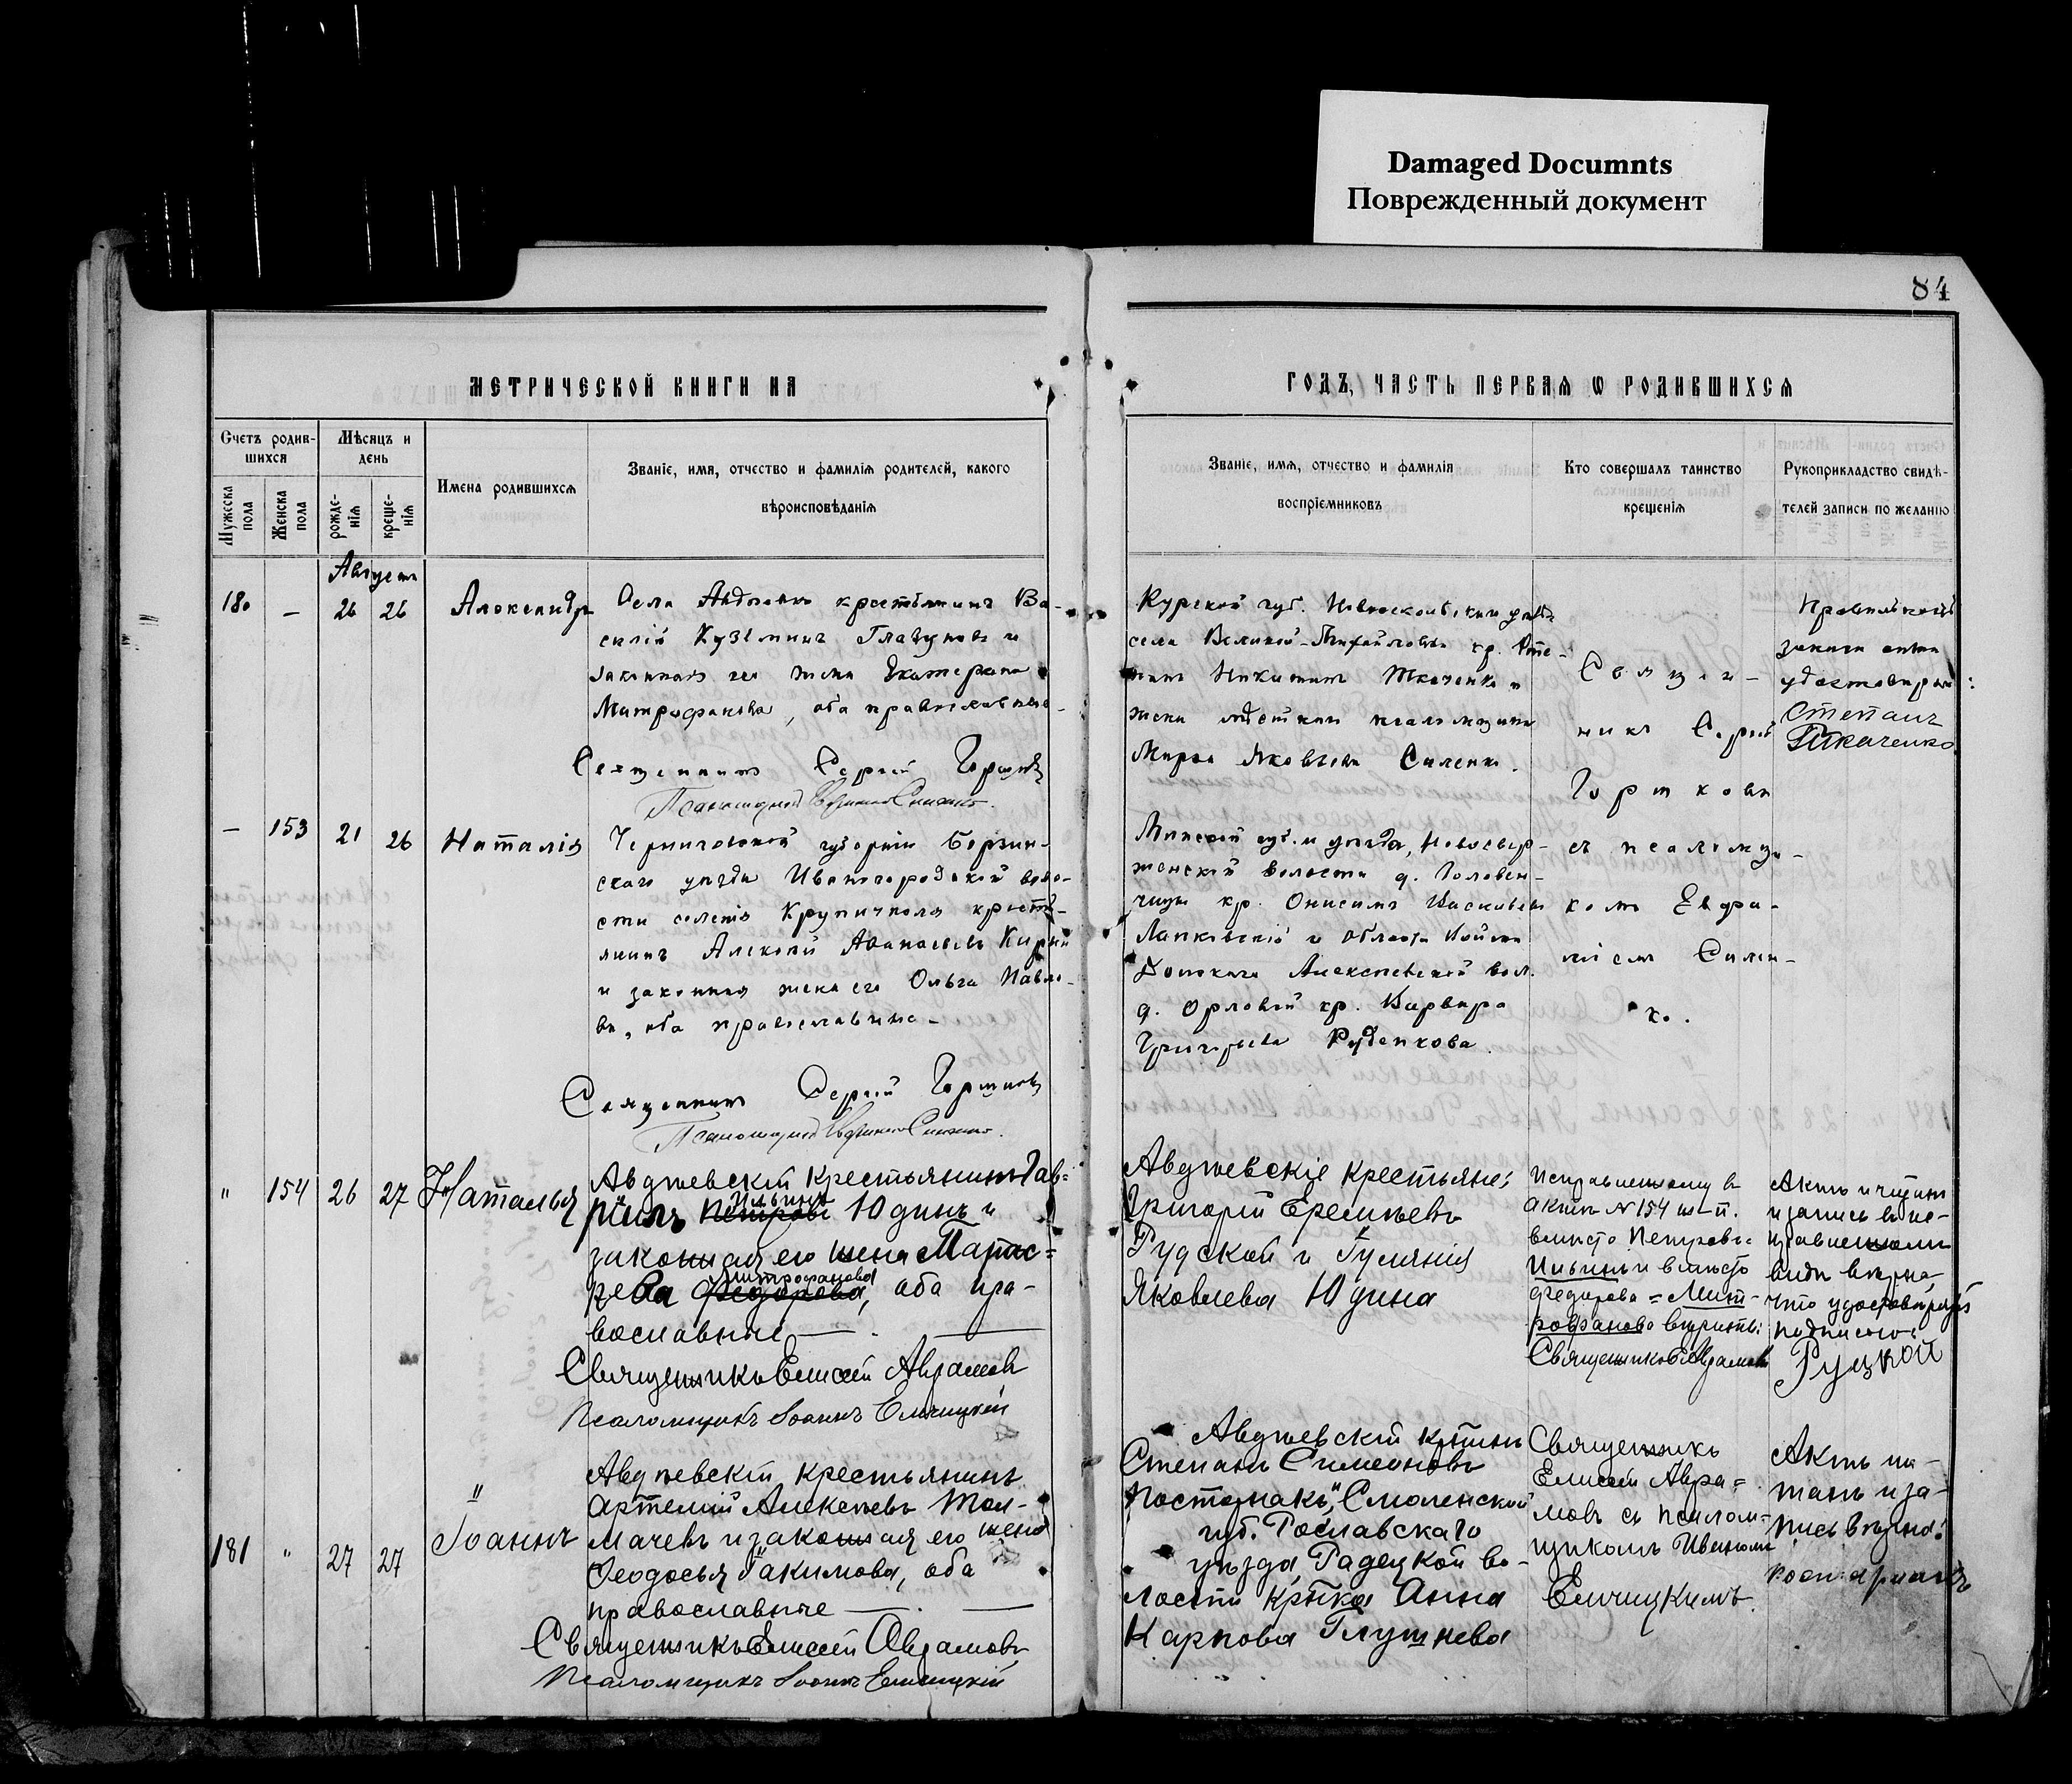 Damaged Documnts
Поврежденный документ
84
МЕТРИЧЕСКОЙ КНИГИ НА
ГОДЪ, ЧАСТЬ ПЕРВАѦ Ѡ РОДИВШИХСѦ
Счетъ родив-
шихся
Мужеска
пола
Женска
пола
Мѣсяцъ и
день
рожде-
нія
креще-
нія
Имена родившихсѧ
Званіе, имя, отчество и фамиліѧ родителей, какого
вѣроисповѣданіѧ
Званіе, имѧ, отчество и фамиліѧ
воспріемниковъ
Кто совершалъ таинство
крещеніѧ
Рукоприкладство свидѣ-
телей записи по желанію
Августъ
180
–
26
26
Александръ
Села крестьянинъ Ва-
силій Кузьминъ и
законная его жена Екатерина
Митрофанова, оба православные
Священникъ Сергій Гортковъ
Курской губ. уѣзда
села Великой-Михайловки кр. Сте-
панъ Никитинъ Ткаченко и
жена псаломщика
Марѳа Яковлева Саленко.
Священ-
никъ Сергій
Гортковъ
съ псаломщи-
комъ Евфи-
міемъ Сален-
ко.
Правильность
записи акта
удостовѣряю:
Степанъ
Ткаченко
–
153
21
26
Наталія
Черниговской губерніи Борзин-
скаго уѣзда Иваногородской воло-
сти селенія Крупичполя кресть-
янинъ Алексѣй Аѳанасьевъ
и законная жена его Ольга Павло-
ва, оба православные
Священникъ Сергій Гортковъ
Минской губ. и уѣзда, Новосвер-
женской волости д. Головен-
чицы кр. Онисимъ
и области Войска
Донскаго Алексѣевской вол.
д. Орловой кр. Варвара
Григорьева Руденкова.
"
154
26
27
Наталья
Авдѣевскій крестьянинъ Гав-
ріилъ Петровъ Ильинъ Юдинъ и
законная его жена Параске-
ва Федорова Митрофанова, оба пра-
вославные
Священникъ Елисей Авраамовъ
Псаломщикъ Іоаннъ Елчицкій
Авдѣевскіе крестьяне:
Григорій Еремѣевъ
Рудской и Іуліанія
Яковлева Юдина
Исправленному въ
актѣ № 154 ж-п.
вмѣсто Петровъ=
Ильинъ и вмѣсто
Федорова = Мит-
рофанова вѣрить:
Священникъ Е. Авраамовъ
Актъ читанъ
и запись въ ис-
правленномъ
видѣ вѣрна,
что удостовѣряю
подписью:
Руцкой
"
181
"
27
27
Іоаннъ
Авдѣевскій крестьянинъ
Артемій Алексѣевъ Тол-
мачевъ и законная его жена
Ѳеодосья Іакимова, оба
православные
Священникъ Елисей Авраамовъ
Псаломщикъ Іоаннъ Елчицкій
Авдѣевскій кр-нинъ
Степанъ Симеоновъ
Смоленской
губ. Рославскаго
уѣзда, Радецкой во-
лости кр-ка Анна
Карпова Глушнева
Священникъ
Елисей Авра=
мовъ съ псалом-
щикомъ Иваномъ
Елчицкимъ.
Актъ чи-
танъ и за-
пись вѣрна: